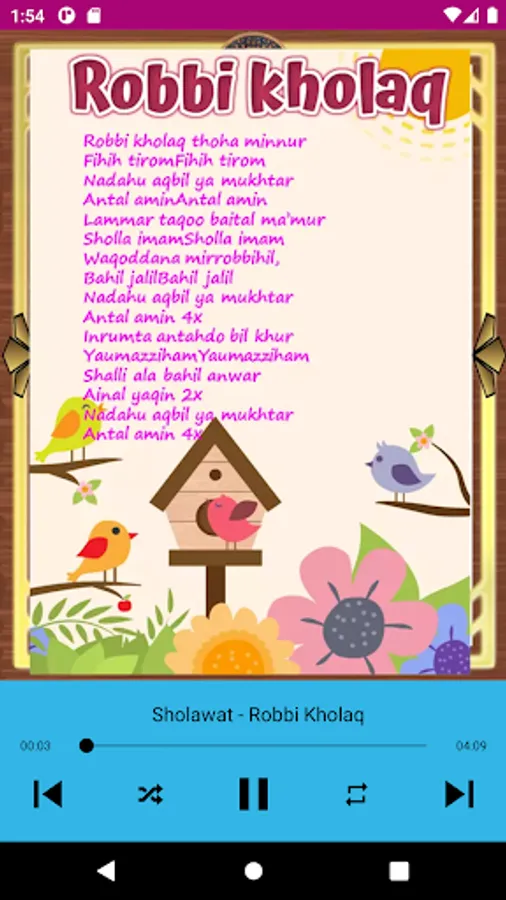 1:54
Robbi kholaq
Robbi kholaq thoha minnur
Fihih tiromFihih tirom
Nadahu aqbil ya mukhtar
Antal aminAntal amin
Lammar taqoo baital ma'mur
Sholla imamSholla imam
Waqoddana mirrobbihil,
Bahil jalilBahil jalil
Nadahu aqbil ya mukhtar
Antal amin 4x
Inrumta antahdo bil khur
YaumazzihamYaumazziham
Shalli ala bahil anwar
Ainal yaqin 2x
Nadahu aqbil ya mukhtar
Antal amin 4x
Sholawat - Robbi Kholaq
00:03
04:09